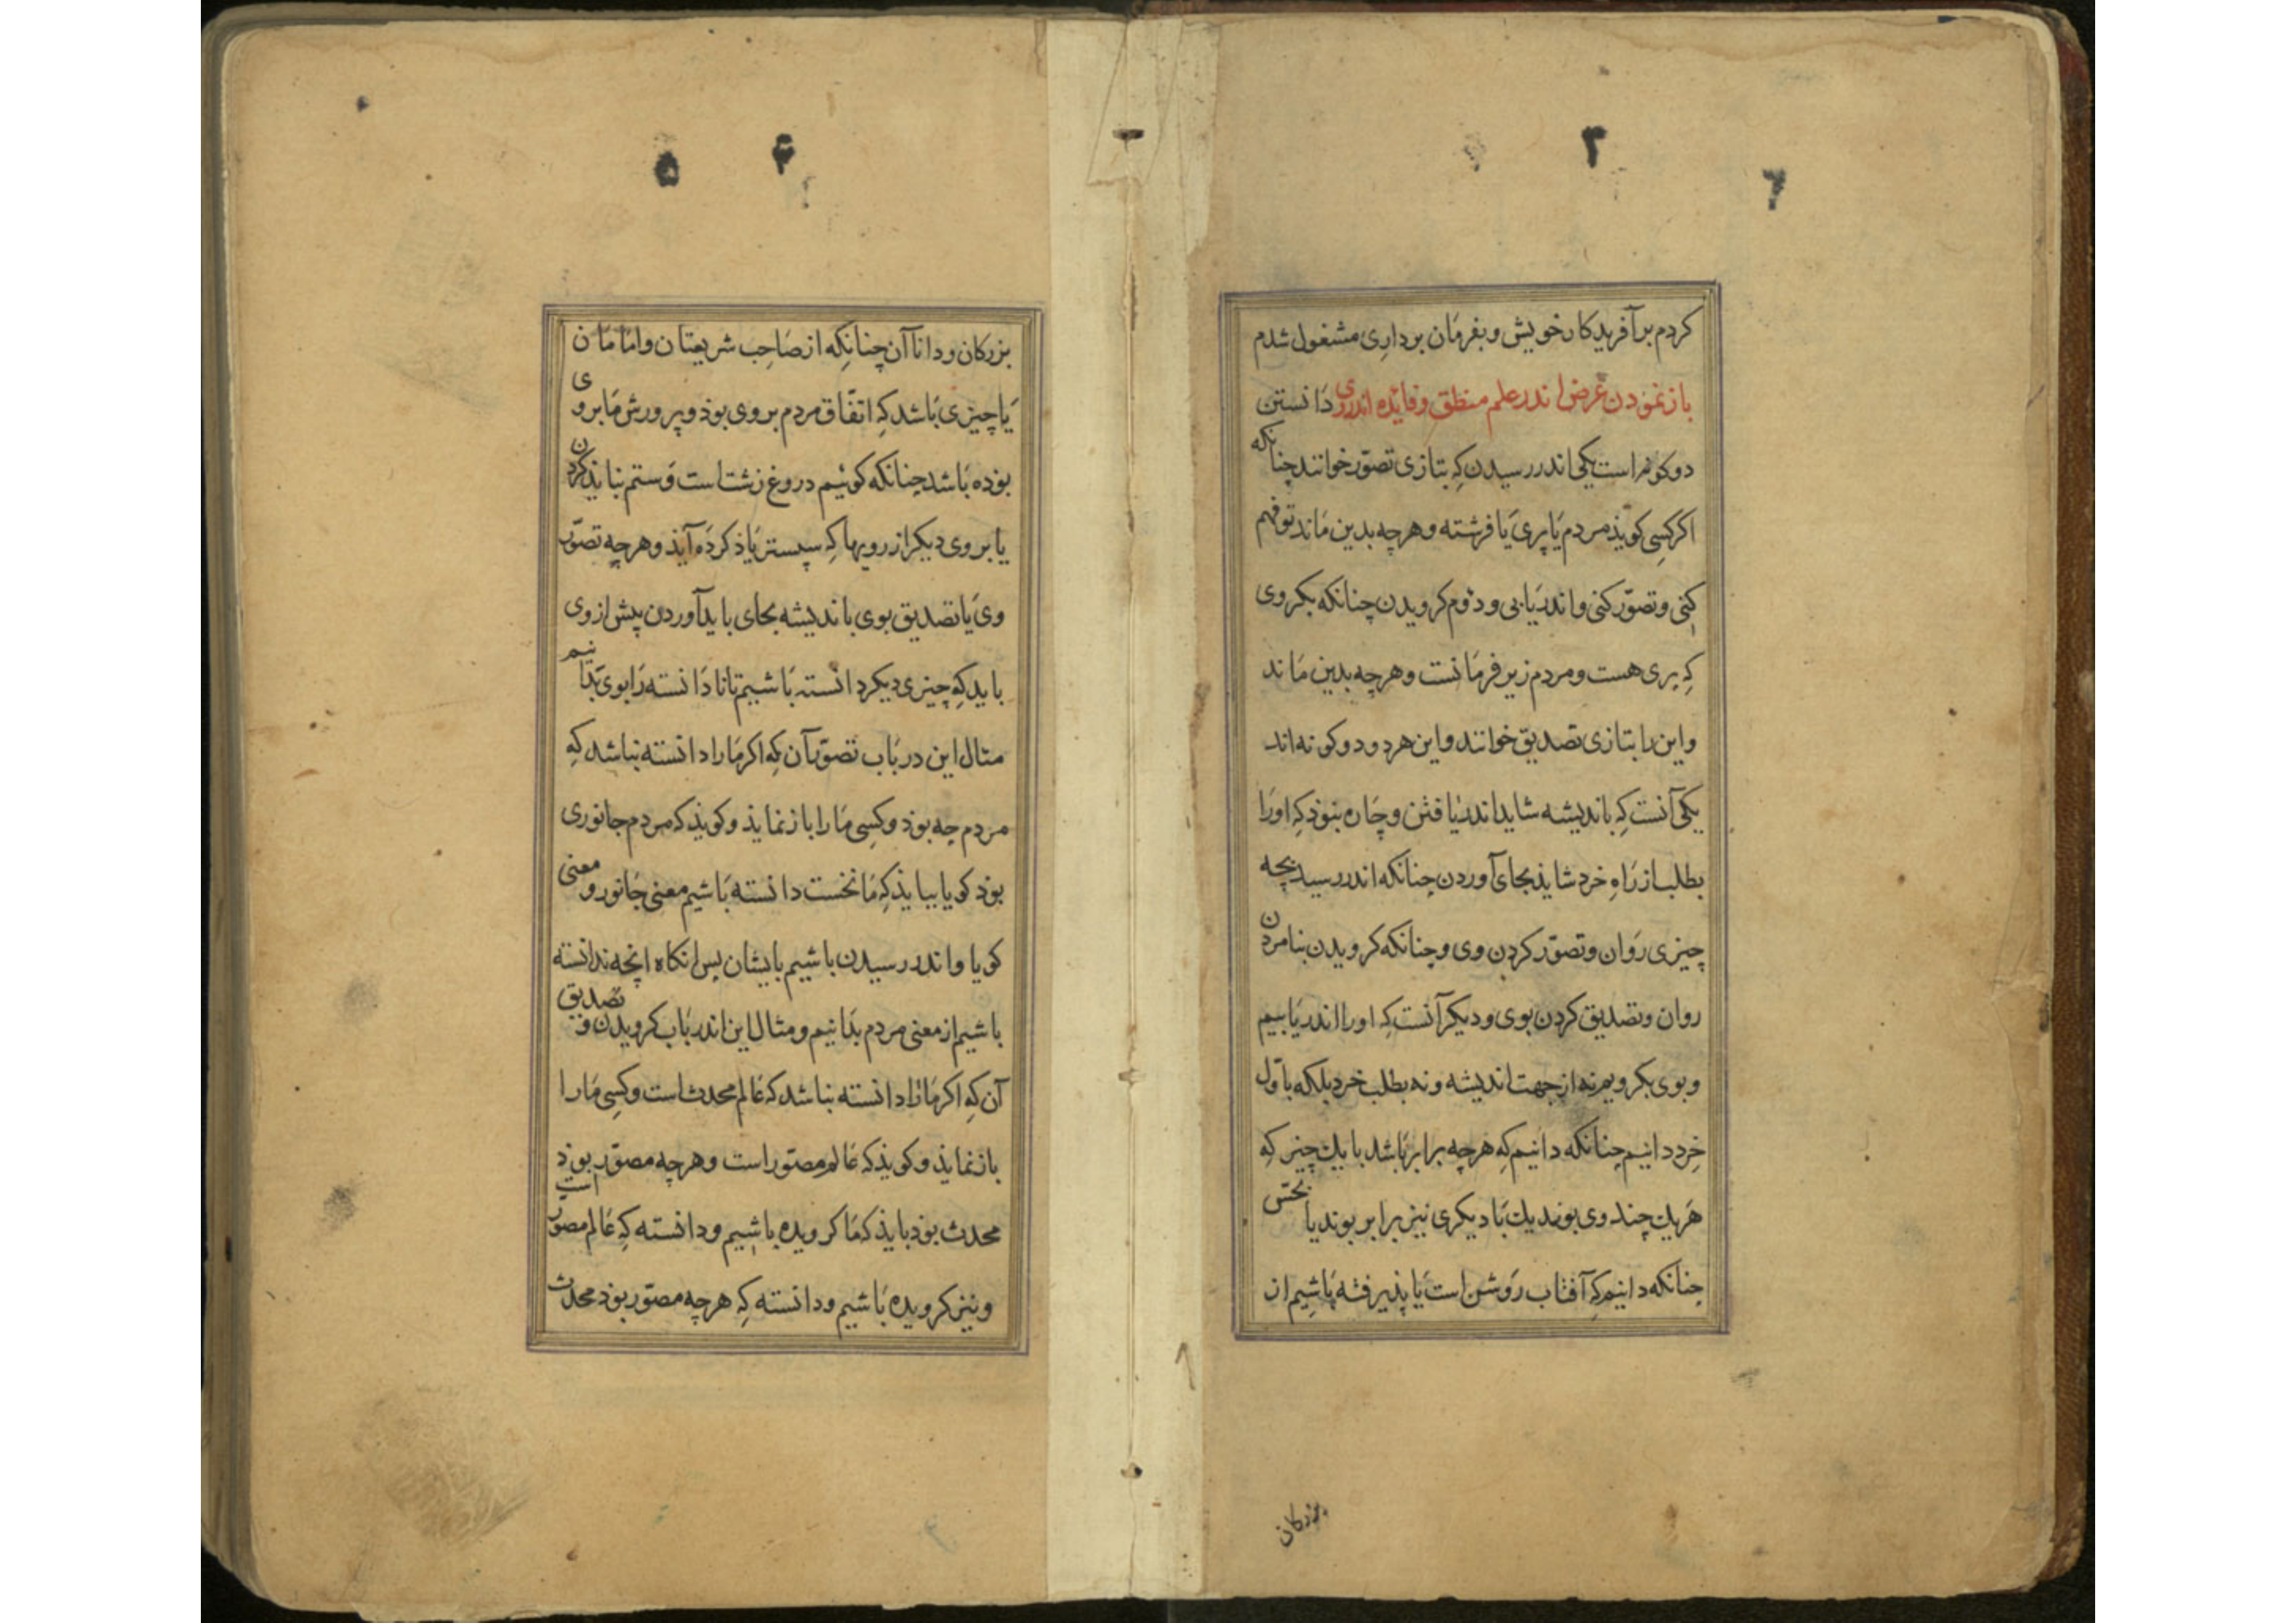 ۳
٦
كردم بر آفريدكار خويش و بفرمان بردارى مشغول شدم
باز نمودن غرض اندر علم منطق و فائده اندر وى دانستن
دو كونه است يكى اندر رسيدن كه بتازى تصوّر خوانند چنانكه
اكر كسى كويذ مردم يا پرى يا فرشته و هرچه بدين ماند تو فهم
كنى و تصوّر كنى و اندريابى و دوم كرويدن چنانكه بكروى
كه پرى هست و مردم زير فرمانست و هرچه بدين ماند
و اين را بتازى تصديق خوانند و اين هر دو دو كونه اند
يكى آنست كه بانديشه شايد اندر يافتن و چاره نبوذ كه او را
بطلب از راه خرد شايذ بجاى آوردن چنانكه اندر رسيدن بچه
چيزى روان و تصوّر كردن وى و چنانكه كرويدن بنامردن
روان و تصديق كردن بوى و ديكر آنست كه او را اندر يابيم
و بوى بكرويم نه از جهت انديشه و نه بطلب خرد بلكه باوّل
خرد دانيم چنانكه دانيم كه هرچه برابر باشد با يك چيز كه
هر يك چند وى بوند يك با ديكرى نيز برابر بوند يا بحسّ
چنانكه دانيم كه آفتاب روشن است يا پذيرفته باشيم از
بزركان
۴
۵
بزركان و داناآن چنانكه از صاحب شريعتان و امامان
يا چيزى باشد كه اتفّاق مردم بر وى بوذ و پرورش ما بر وى
بوده باشد چنانكه كوئيم دروغ زشت است و ستم نبايذ كردن
يا بروى ديكر از رويها كه سپستر ياذ كرده آيذ و هرچه تصوّر
وى يا تصديق بوى بانديشه بجاى بايد آوردن پيش از وى
بايد كه چيزى ديكر دانسته باشيم تا نادانسته را بوى بدانيم
مثال اين در باب تصوّر آن كه اكر ما را دانسته نباشد كه
مردم چه بوذ و كسى ما را باز نمايذ و كويذ كه مردم جانورى
بوذ كويا ببايذ كه ما نخست دانسته باشيم معنى جانور و معنى
كويا و اندر رسيدن باشيم بايشان پس انكاه انچه ندانسته
باشيم از معنى مردم بدانيم و مثال اين اندر باب كرويدن و تصديق
آن كه اكر ما را دانسته نباشد كه عالم محدث است و كسى ما را
باز نمايذ و كويذ كه عالم مصوّر است و هرچه مصوّر بوذ
محدث بوذ بايذ كه ما كرويده باشيم و دانسته كه عالم مصوّر است
و نيز كرويده باشيم و دانسته كه هرچه مصوّر بوذ محدث